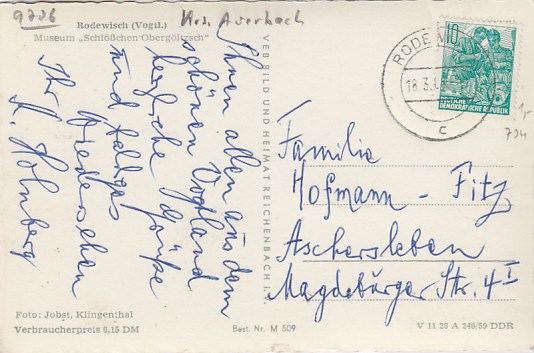 9706
Rodewisch (Vogtl.)
Krs. Auerbach
Museum „Schlößchen Obergöltzsch"
Ihnen allen aus dem
schönen Vogtland
herzliche Grüße
und baldiges
Wiedersehen
Ihr
H. Holnberg
VEB BILD UND HEIMAT REICHENBACH i. V.
RODEWI
18.3.
c
10
DEUTSCHE
DEMOKRATISCHE REPUBLIK
5
1,-
704
Familie
Hofmann - Fitz
Aschersleben
Magdeburger Str. 4 I
Foto: Jobst, Klingenthal
Verbraucherpreis 0,15 DM
Best. Nr. M 509
V 11 28 A 246/59 DDR